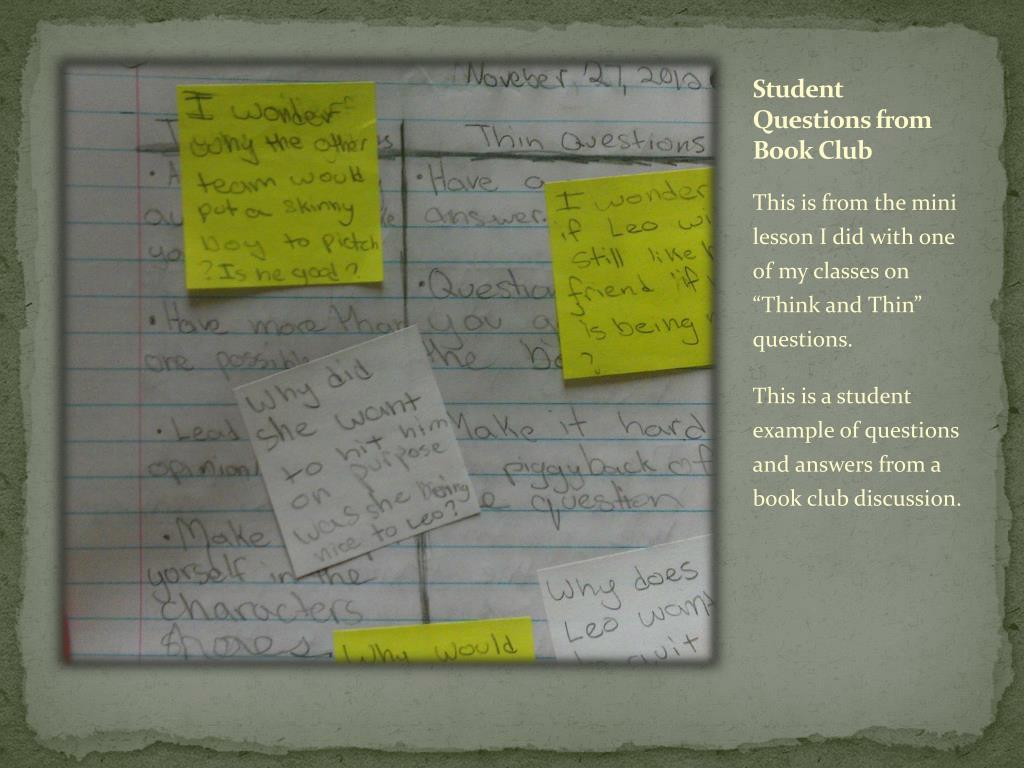 Noveber, 27, 2012
Thin Questions
I wonder
why the other
team would
put a skinny
boy to pictch
? Is he good ?
• Have a
answer.
I wonder
if Leo
still like
friend if
is being
?
• Question
you a
the bo
• Have more than
are possible
• Lead
opinion
• Make
yorself in the
characters
shoes.
Why did
she want
to hit him
on purpose
was she being
nice to Leo?
Make it hard
piggyback of
question
Why does
Leo want
quit
Why would
Student
Questions from
Book Club
This is from the mini
lesson I did with one
of my classes on
“Think and Thin”
questions.
This is a student
example of questions
and answers from a
book club discussion.